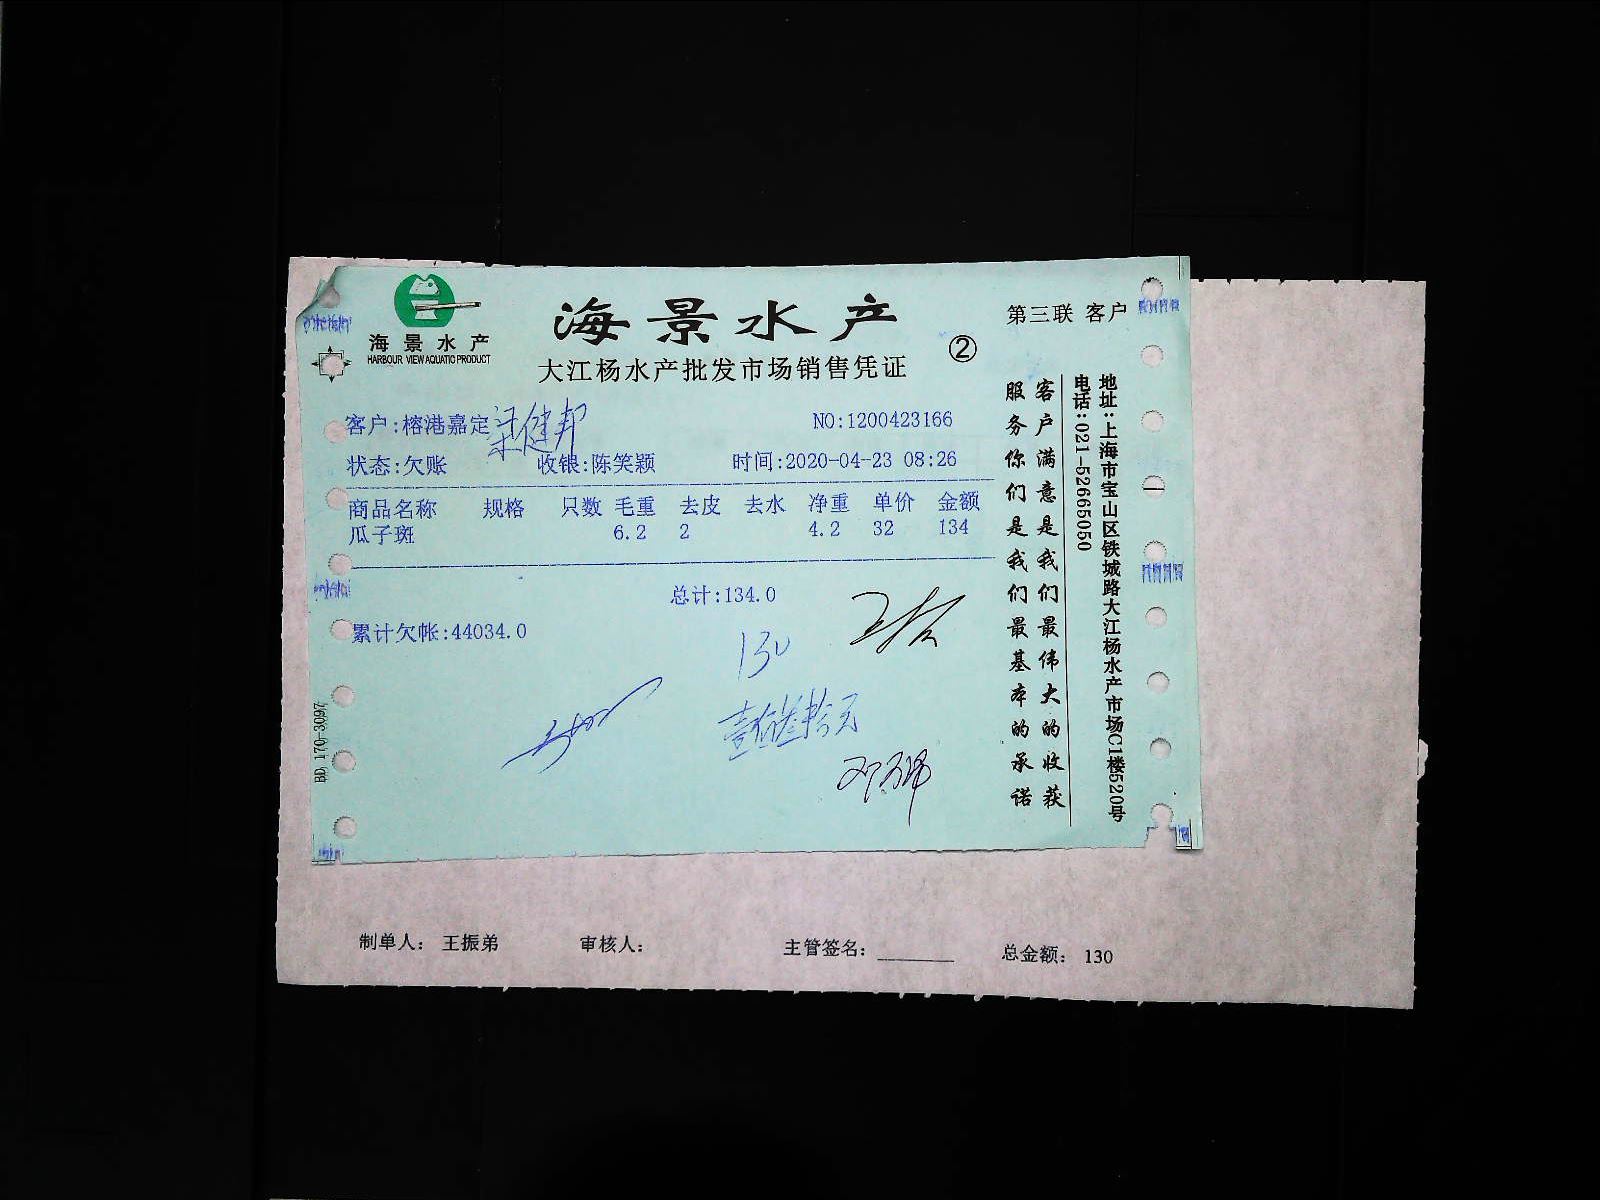 海景水产
HARBOUR VIEW AQUATIC PRODUCT
海景水产
大江杨水产批发市场销售凭证
②
第三联 客户
客户:榕港嘉定 梁健邦
NO:1200423166
状态:欠账 收银:陈笑颖 时间:2020-04-23 08:26
商品名称 规格 只数 毛重 去皮 去水 净重 单价 金额
瓜子斑 6.2 2 4.2 32 134
总计:134.0
累计欠帐:44034.0
130
壹佰叁拾元
客户满意是我们最伟大的收获
服务你们是我们最基本的承诺
地址:上海市宝山区铁城路大江杨水产市场C1楼520号
电话:021-52665050
BD 170-3097
制单人: 王振弟 审核人: 主管签名: 总金额: 130